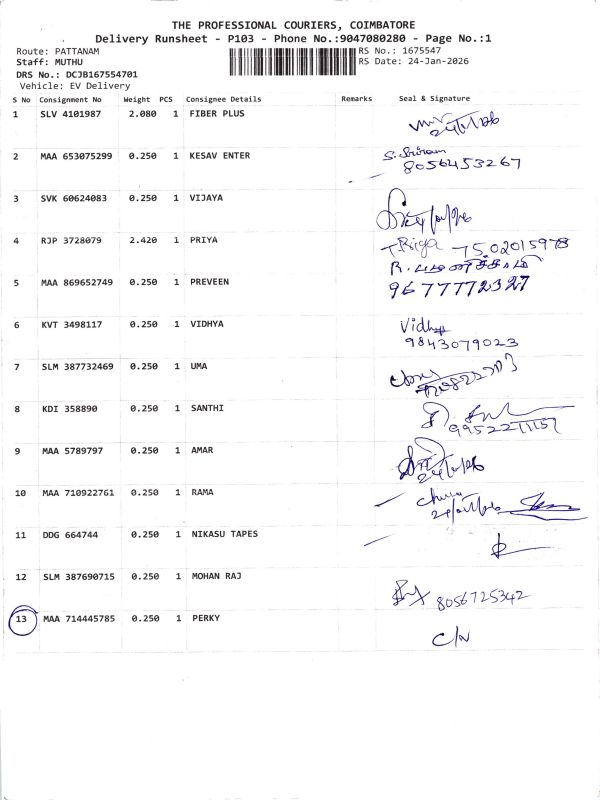 THE PROFESSIONAL COURIERS, COIMBATORE
Delivery Runsheet - P103 - Phone No.:9047080280 - Page No.:1
Route: PATTANAM
RS No.: 1675547
Staff: MUTHU
RS Date: 24-Jan-2026
DRS No.: DCJB167554701
Vehicle: EV Delivery
S No Consignment No Weight PCS Consignee Details Remarks Seal & Signature
1 SLV 4101987 2.080 1 FIBER PLUS
24/1/26
2 MAA 653075299 0.250 1 KESAV ENTER S. Sriram
8056453267
3 SVK 60624083 0.250 1 VIJAYA
4 RJP 3728079 2.420 1 PRIYA
5 MAA 869652749 0.250 1 PREVEEN
6 KVT 3498117 0.250 1 VIDHYA Vidhya
9843079023
7 SLM 387732469 0.250 1 UMA
8 KDI 358890 0.250 1 SANTHI
9 MAA 5789797 0.250 1 AMAR
24/1/26
10 MAA 710922761 0.250 1 RAMA
11 DDG 664744 0.250 1 NIKASU TAPES
12 SLM 387690715 0.250 1 MOHAN RAJ
8056725342
13 MAA 714445785 0.250 1 PERKY
C/N